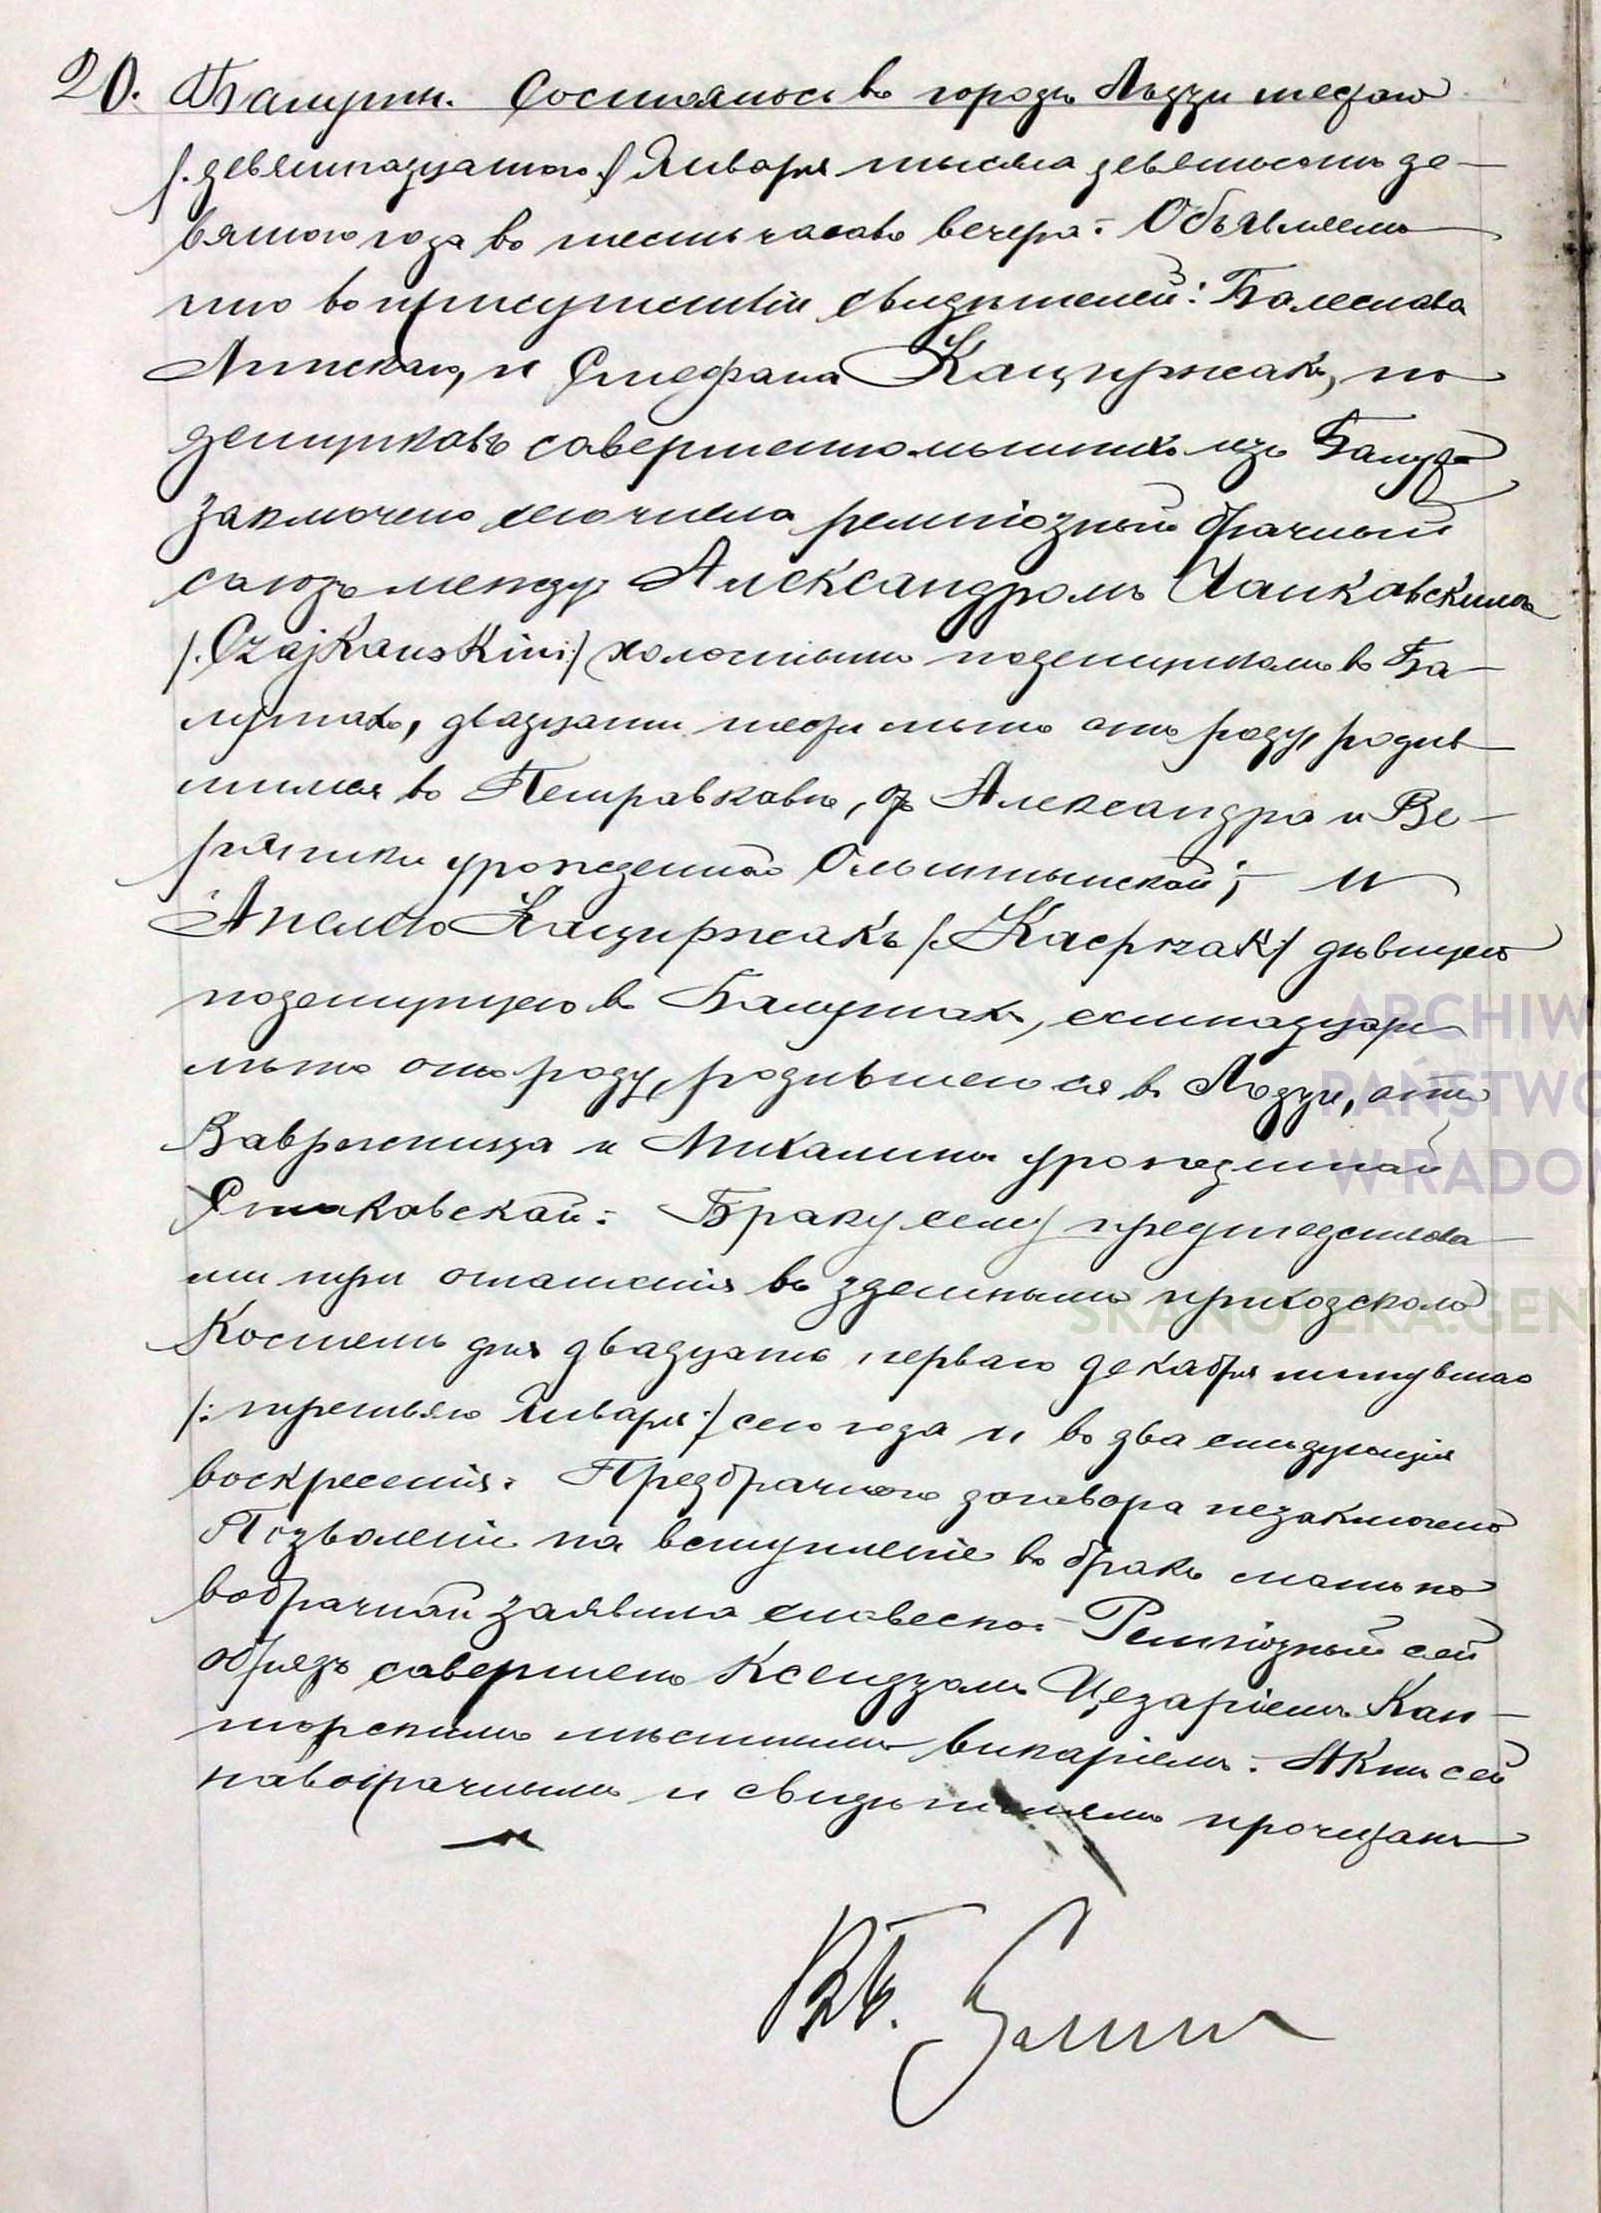 20. Балуты. Состоялось въ городѣ Лодзи шестаго
/:девятнадцатаго:/ Января тысяча девятьсотъ де-
вятаго года въ шесть часовъ вечера. Объявляемъ
что въ присутствіи свидѣтелей: Болеслава
Липскаго, и Стефана Кацпржакъ, по
денщиковъ совершеннолѣтнихъ изъ Балутъ
заключенъ сего числа религіозный брачный
союзъ между Александромъ Чайковскимъ
/:Czajkowskim:/ холостымъ поденщикомъ въ Ба-
лутахъ, двадцати трехъ лѣтъ отъ роду, родив
шимся въ Петроковѣ, отъ Александра и Ве-
роники урожденной Ольштынской; и
Анелею Кацпржакъ /:Kacprzak:/ дѣвицею
поденщицею въ Балутахъ, семнадцати
лѣтъ отъ роду, родившеюся въ Лодзи, отъ
Вавржинца и Михалины урожденной
Браку сему предшествова
ли три оглашенія въ здѣшнемъ приходскомъ
Костелѣ дня двадцать перваго Декабря минувшаго
/:третьяго Января:/ сего года и въ два слѣдующія
воскресенія. Предбрачнаго договора незаключено
Позволеніе на вступленіе въ бракъ мать но
вобрачной заявила словесно. Религіозный сей
обрядъ совершенъ Ксендзомъ Цезаріемъ Кан-
торскимъ мѣстнымъ викаріемъ. Актъ сей
новобрачнымъ и свидѣтелямъ прочитанъ
и